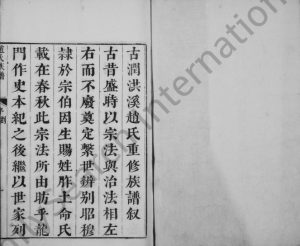 古潤洪溪趙氏重修族譜叙
古昔盛時以宗法與治法相左
右而不廢奠定繫世辨别昭穆
隷於宗伯因生賜姓胙土命氏
載在春秋此宗法所由昉乎龍
門作史本紀之後繼以世家列